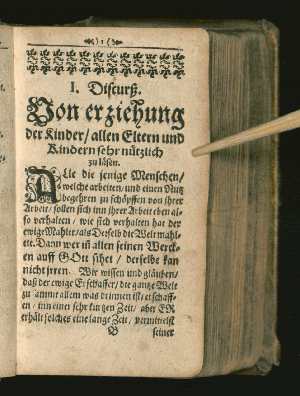 I. Discurß.
Von erziehung
der Kinder / allen Eltern und
Kindern sehr nützlich
zu läsen.
ALle die jenige Menschen /
welche arbeiten / und einen Nutz
begehren zu schöpffen von ihrer
Arbeit / sollen sich inn ihrer Arbeit eben al-
so verhalten / wie sich verhalten hat der
ewige Mahler / als Derselb die Welt mahl-
ett. Dann wer in allen seinen Werck-
en auff GOtt sihet / derselbe kan
nicht irren. Wir wissen und glauben /
daß der ewige Erschaffer / die gantze Welt
zusammt allem was drinnen ist / erschaff-
en / inn einer sehr kurtzen Zeit / aber ER
erhält solches eine lange Zeit / vermittelst
B seiner